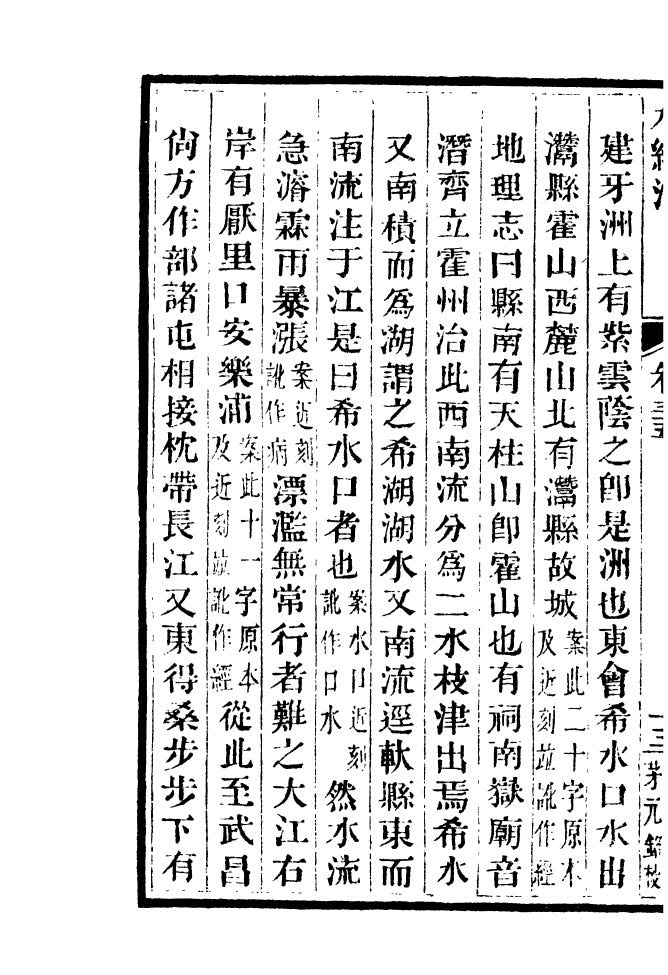 水經注 卷三五 十三 茅元銘校
建牙洲上有紫雲蔭之卽是洲也東會希水口水出
灊縣霍山西麓山北有灊縣故城案此二十字原本及近刻竝訛作經
地理志曰縣南有天柱山卽霍山也有祠南嶽廟音
潛齊立霍州治此西南流分爲二水枝津出焉希水
又南積而爲湖謂之希湖湖水又南流逕軑縣東而
南流注于江是曰希水口者也案水口近刻訛作口水然水流
急濬霖雨暴漲案近刻訛作病漂濫無常行者難之大江右
岸有厭里口安樂浦案此十一字原本及近刻竝訛作經從此至武昌
尙方作部諸屯相接枕帶長江又東得桑步步下有